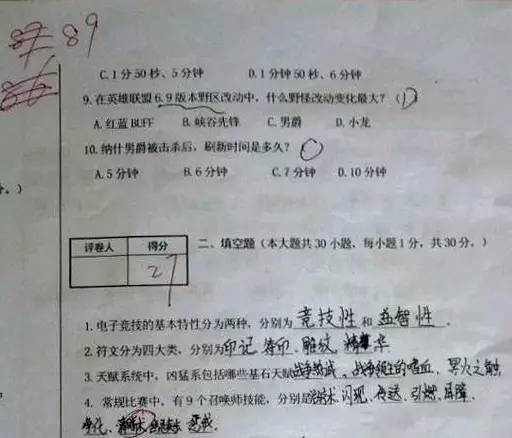 89
C.1分50秒、5分钟 D.1分钟50秒、6分钟
9.在英雄联盟6.9版本野区改动中,什么野怪改动变化最大?(D)
A.红蓝BUFF B.峡谷先锋 C.男爵 D.小龙
10.纳什男爵被击杀后,刷新时间是多久?
A.5分钟 B.6分钟 C.7分钟 D.10分钟
。)
评卷人 得分
27
二、填空题(本大题共30小题,每小题1分,共30分。)
1.电子竞技的基本特性分为两种,分别为 竞技性 和 益智性 .
2.符文分为四大类,分别为印记、符印、雕纹、精华
3.天赋系统中,凶猛系包括哪些基石天赋战争热诚、战争领主的嗜血、死火之触
4.常规比赛中,有9个召唤师技能,分别是治疗术、闪现、传送、引燃、屏障、
净化、清晰术、惩戒.